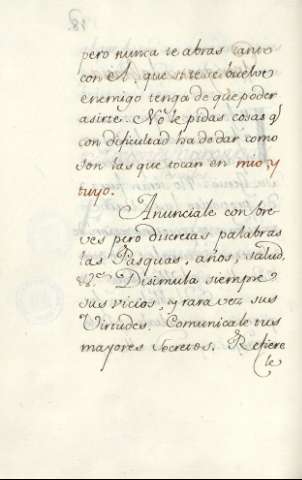 pero nunca te abras tanto
con El, que si te se buelve
enemigo tenga de que poder
asirte. No le pidas cosas q̃
con dificultad ha de dar como
son las que tocan en mio, y
tuyo.
Anunciale con bre-
ves pero discretas palabras
las Pasquas, años, salud,
&c.ª Disimula siempre
sus vicios, y rara vez sus
Virtudes. Comunicale tus
mayores Secretos. Refiere
le